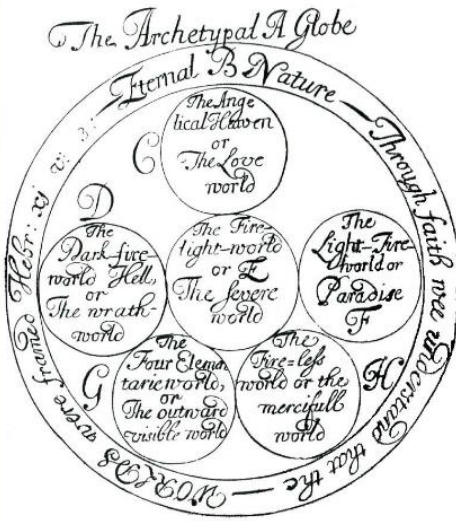 The Archetypal A Globe
Eternal B Nature — Through faith wee understand that the — WORLDS were framed Hebr: xj v: 3:
C
The Ange
lical Heaven
or
The Love
world
D
The
Dark-fire-
world Hell,
or
The wrath-
world
The Fire-
light-world
or E
The severe
world
The
Light-Fire-
world or
Paradise
F
G
The
Four Elemen
tarie world,
or
The outward
visible world
The
Fire=less
world or the
mercifull
world
H